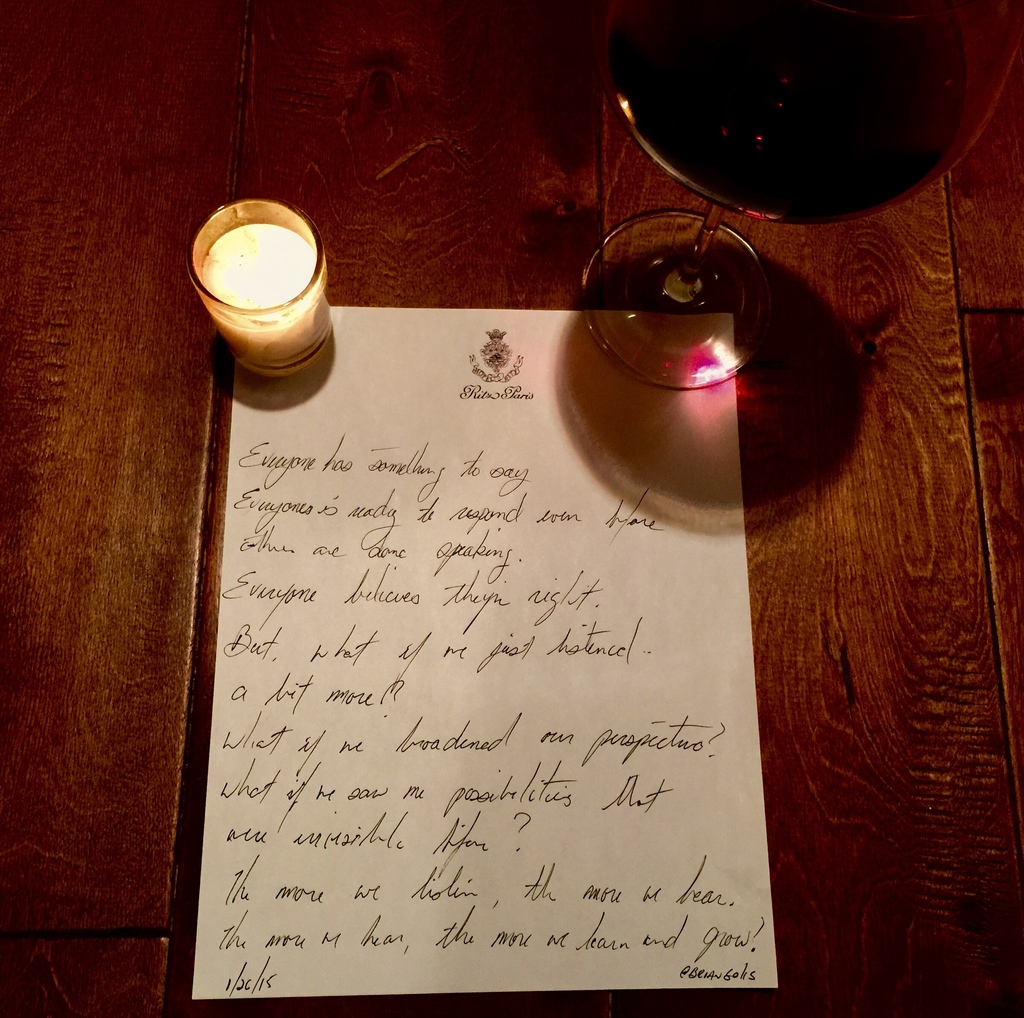 Ritz Paris
Everyone has something to say
Everyones is ready to respond even before
others are done speaking.
Everyone believes they're right.
But, what if we just listened..
a bit more?
What if we broadened our perspective?
What if we saw new possibilities that
were invisible before?
The more we listen, the more we hear.
The more we hear, the more we learn and grow!
1/26/15